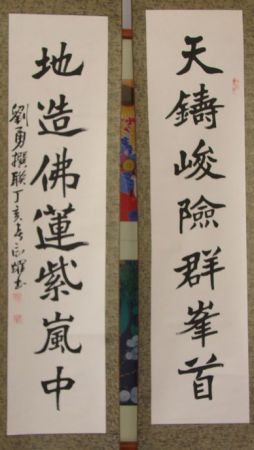 天鑄峻險群峯首
地造佛蓮紫嵐中
劉勇撰聯丁亥